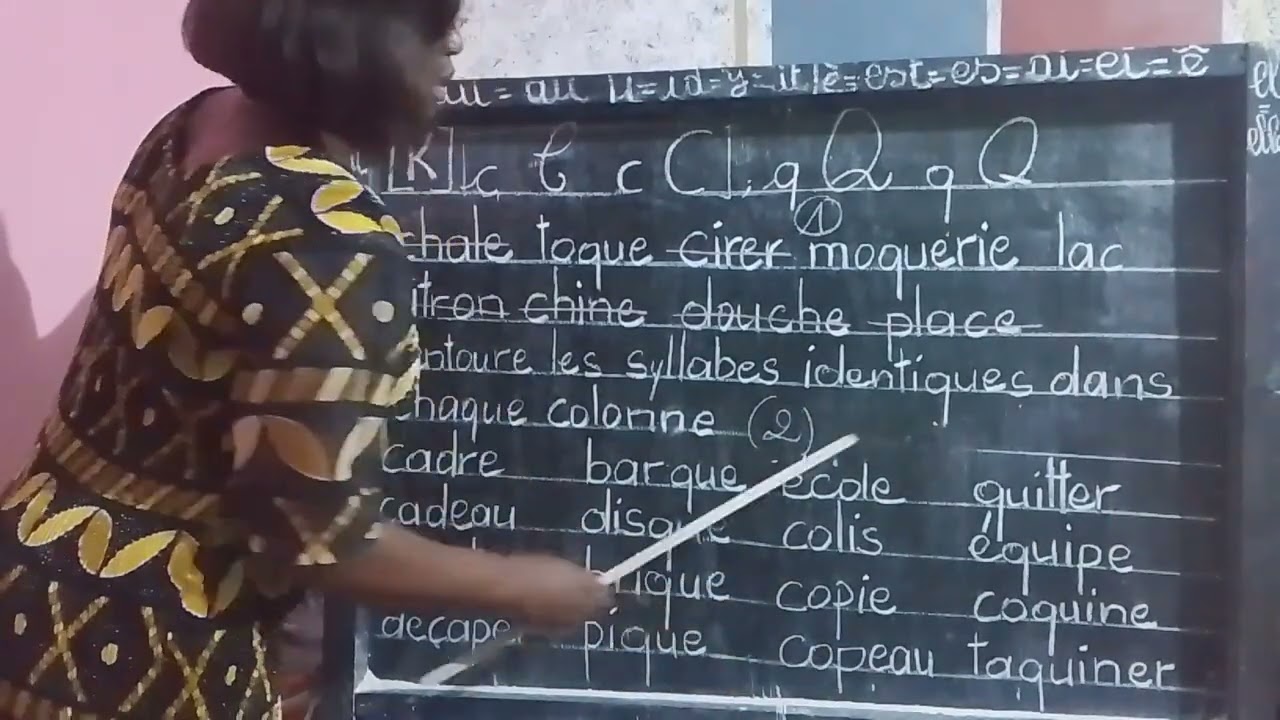 = au u = id = y = it è = est = es = ai = ei = ê
[K] c C c C q Q q Q
①
chale toque cirer moquerie lac
itron chine douche place
ntoure les syllabes identiques dans
chaque colonne (2)
cadre barque école quitter
cadeau disque colis équipe
brique copie coquine
deçaper pique copeau taquiner